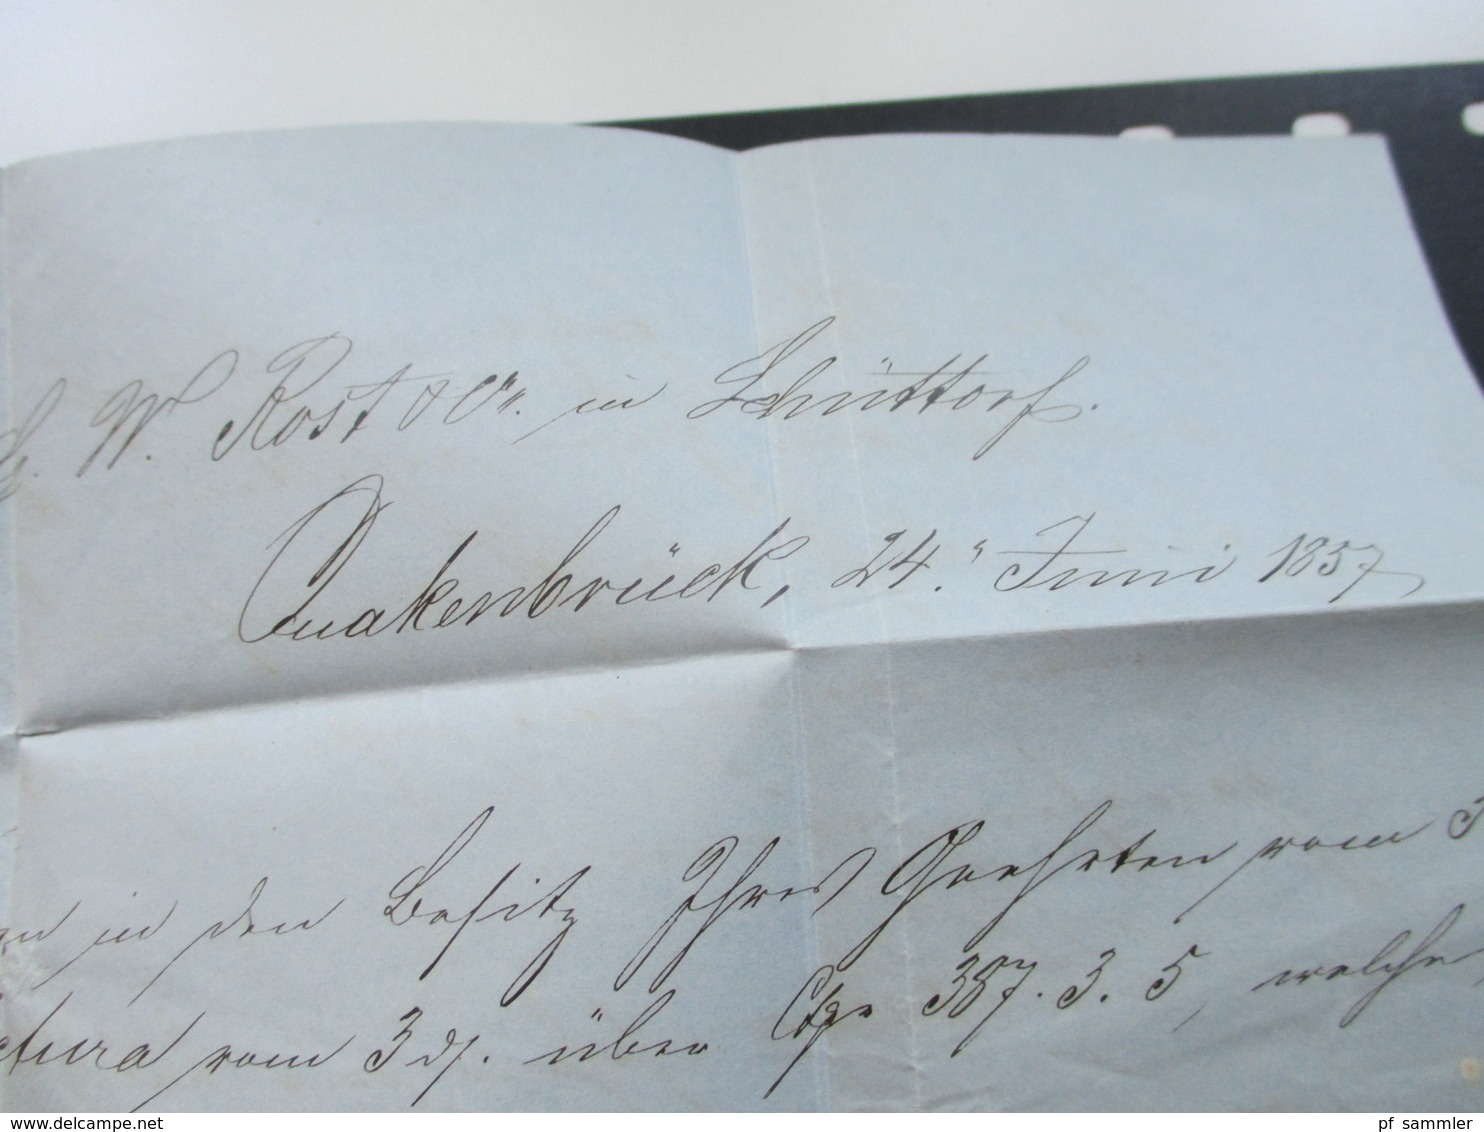 W. Rost & Cie. in Schüttorf.
Quakenbrück, 24." Juni 1857
in den Besitz Ihres Geehrten vom 3
ctura vom 3 ds. über 387. 3. 5, welche
pf sammler